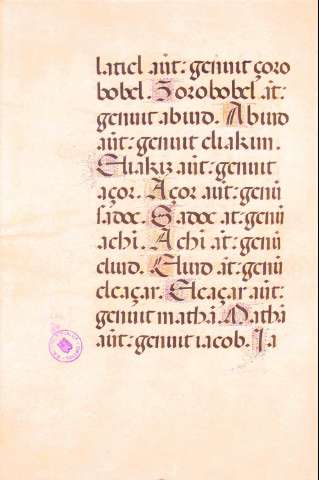 latiel aūt: genuit çoro
bobel. Zorobobel āt:
genuit abiud. Abiud
aūt: genuit eliakim.
Eliakiz aūt: genuit
açor. Açor aūt: genū
sadoc. Sadoc āt: genū
achī. Achī āt: genū
eliud. Eliud āt: genū
eleaçar. Eleaçar aūt:
genuit mathā. Mathā
aūt: genuit iacob. Ja